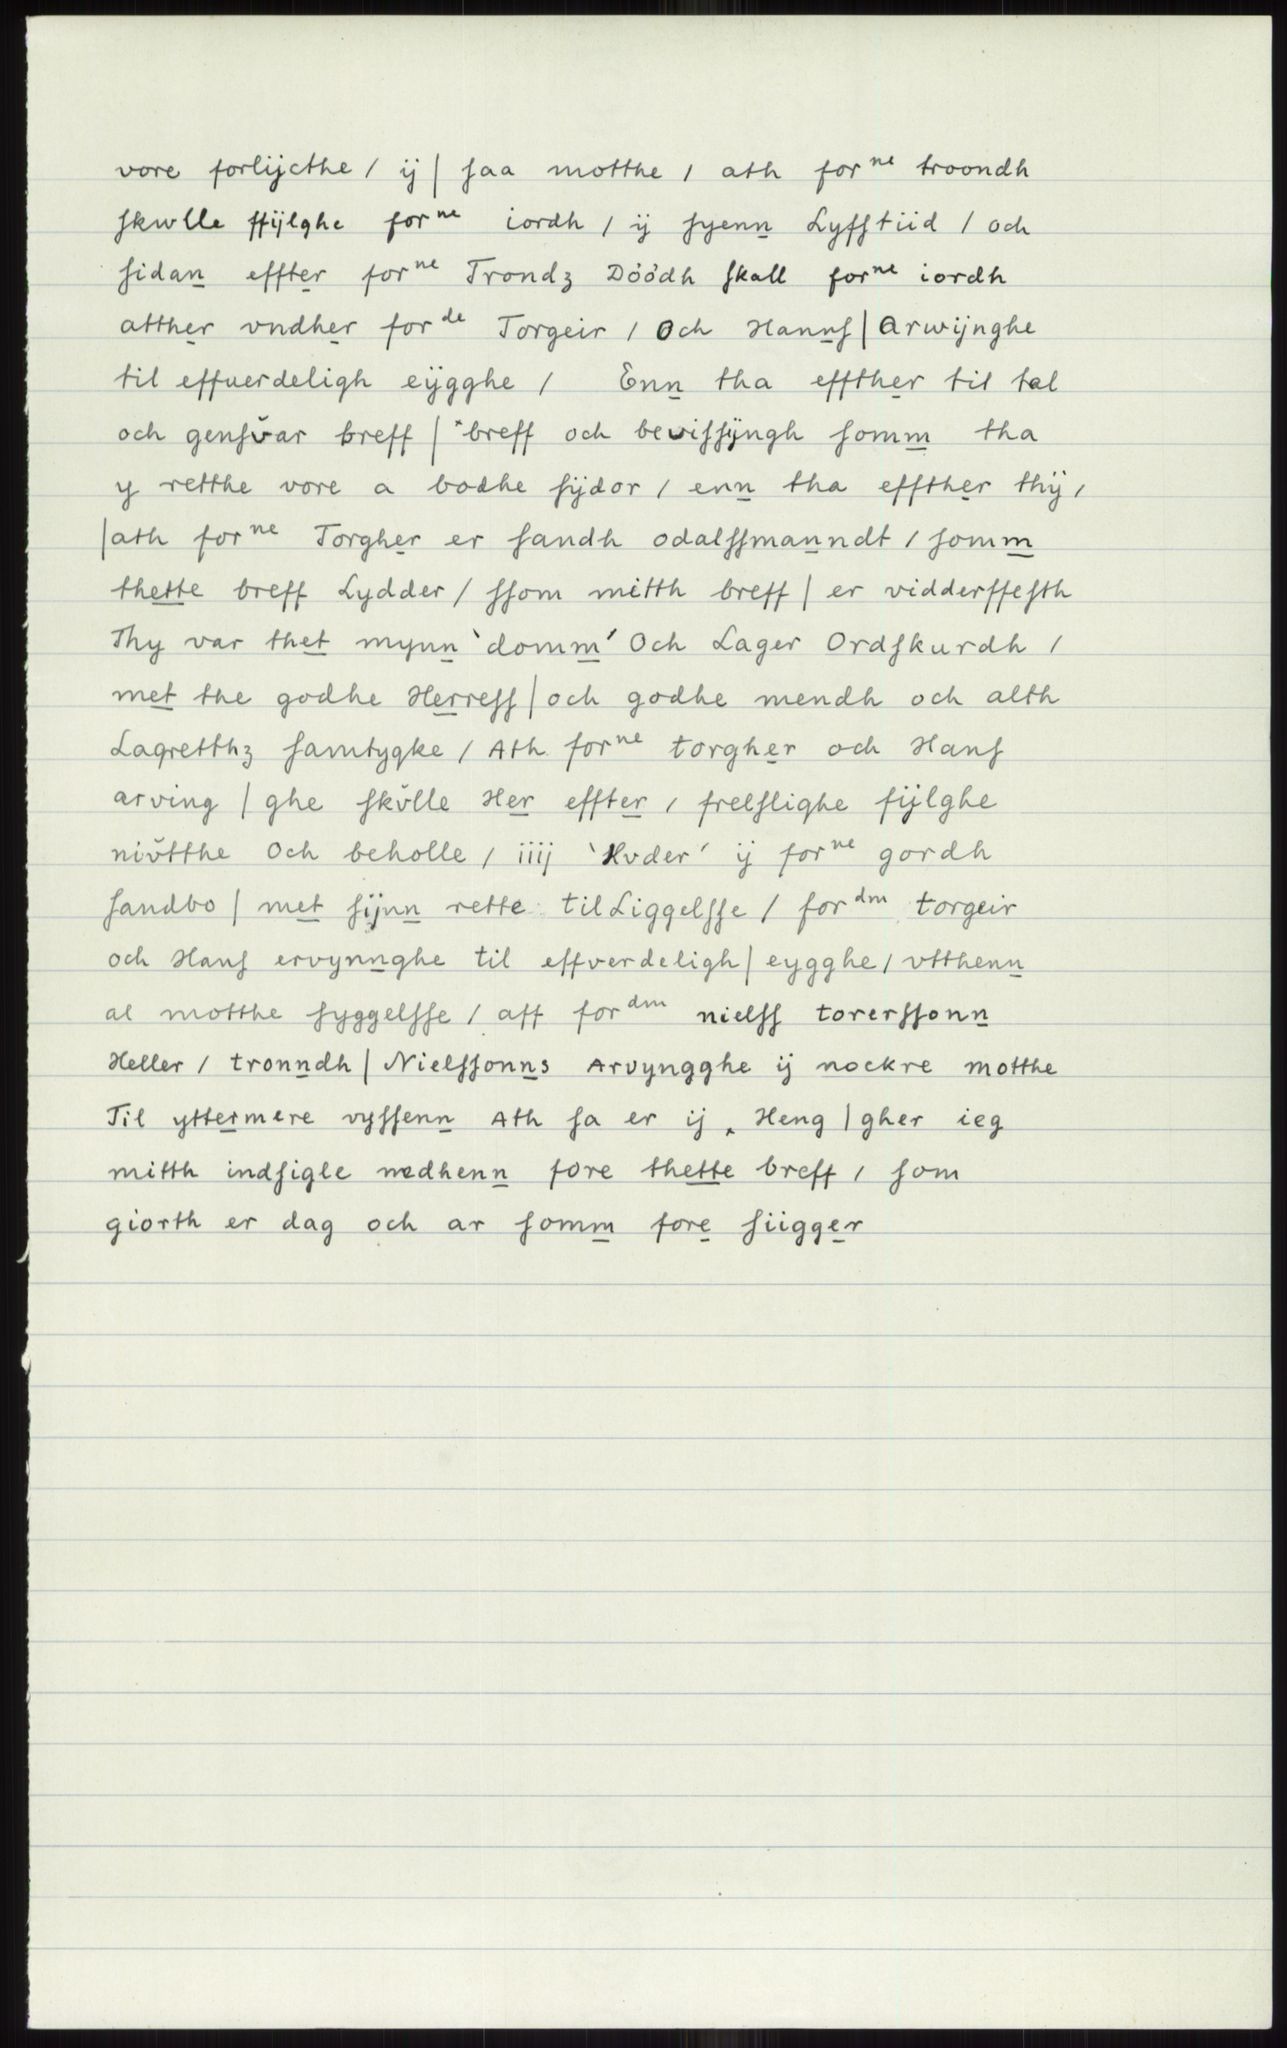 vore forlijcthe / ij | saa motthe / ath for^ne troondh
skwlle ffijlghe for^ne iordh / ij syenn Lyffstiid / och
sidan effter for^ne Trondz Döödh skall for^ne iordh
atther vndher for^de Torgeir / Och Hanns | Arwijnghe
til effuerdeligh eÿgghe / Enn tha effther til tal
och gensv̆ar breff | *breff och bevissÿngh somm tha
y retthe vore a bodhe sijdor / enn tha effther thÿ /
| ath for^ne Torgher er sandh odalssmanndt / somm
thette breff Lydder / ssom mitth breff | er vidderffesth
Thy var thet mynn `domm´ Och Lager Ordskurdh /
met the godhe Herress | och godhe mendh och alth
Lagretthz samtygke / Ath for^ne torgher och Hans
arving | ghe skv̆lle Her effter / frelslighe fijlghe
niv̆tthe Och beholle / iiij `Hvder´ ij for^ne gordh
sandbo | met sijnn rette til Liggelsse / for^dm torgeir
och Hans ervynnghe til effverdeligh | eygghe / vtthenn
al motthe syggelsse / aff for^dm nielss torerssonn
Heller / tronndh | Nielssonns Arvyngghe ij nockre motthe
Til yttermere vyssenn Ath sa er ij ‸ Heng | gher ieg
mitth indsigle nedhenn fore thette breff / som
giorth er dag och ar somm fore siigger